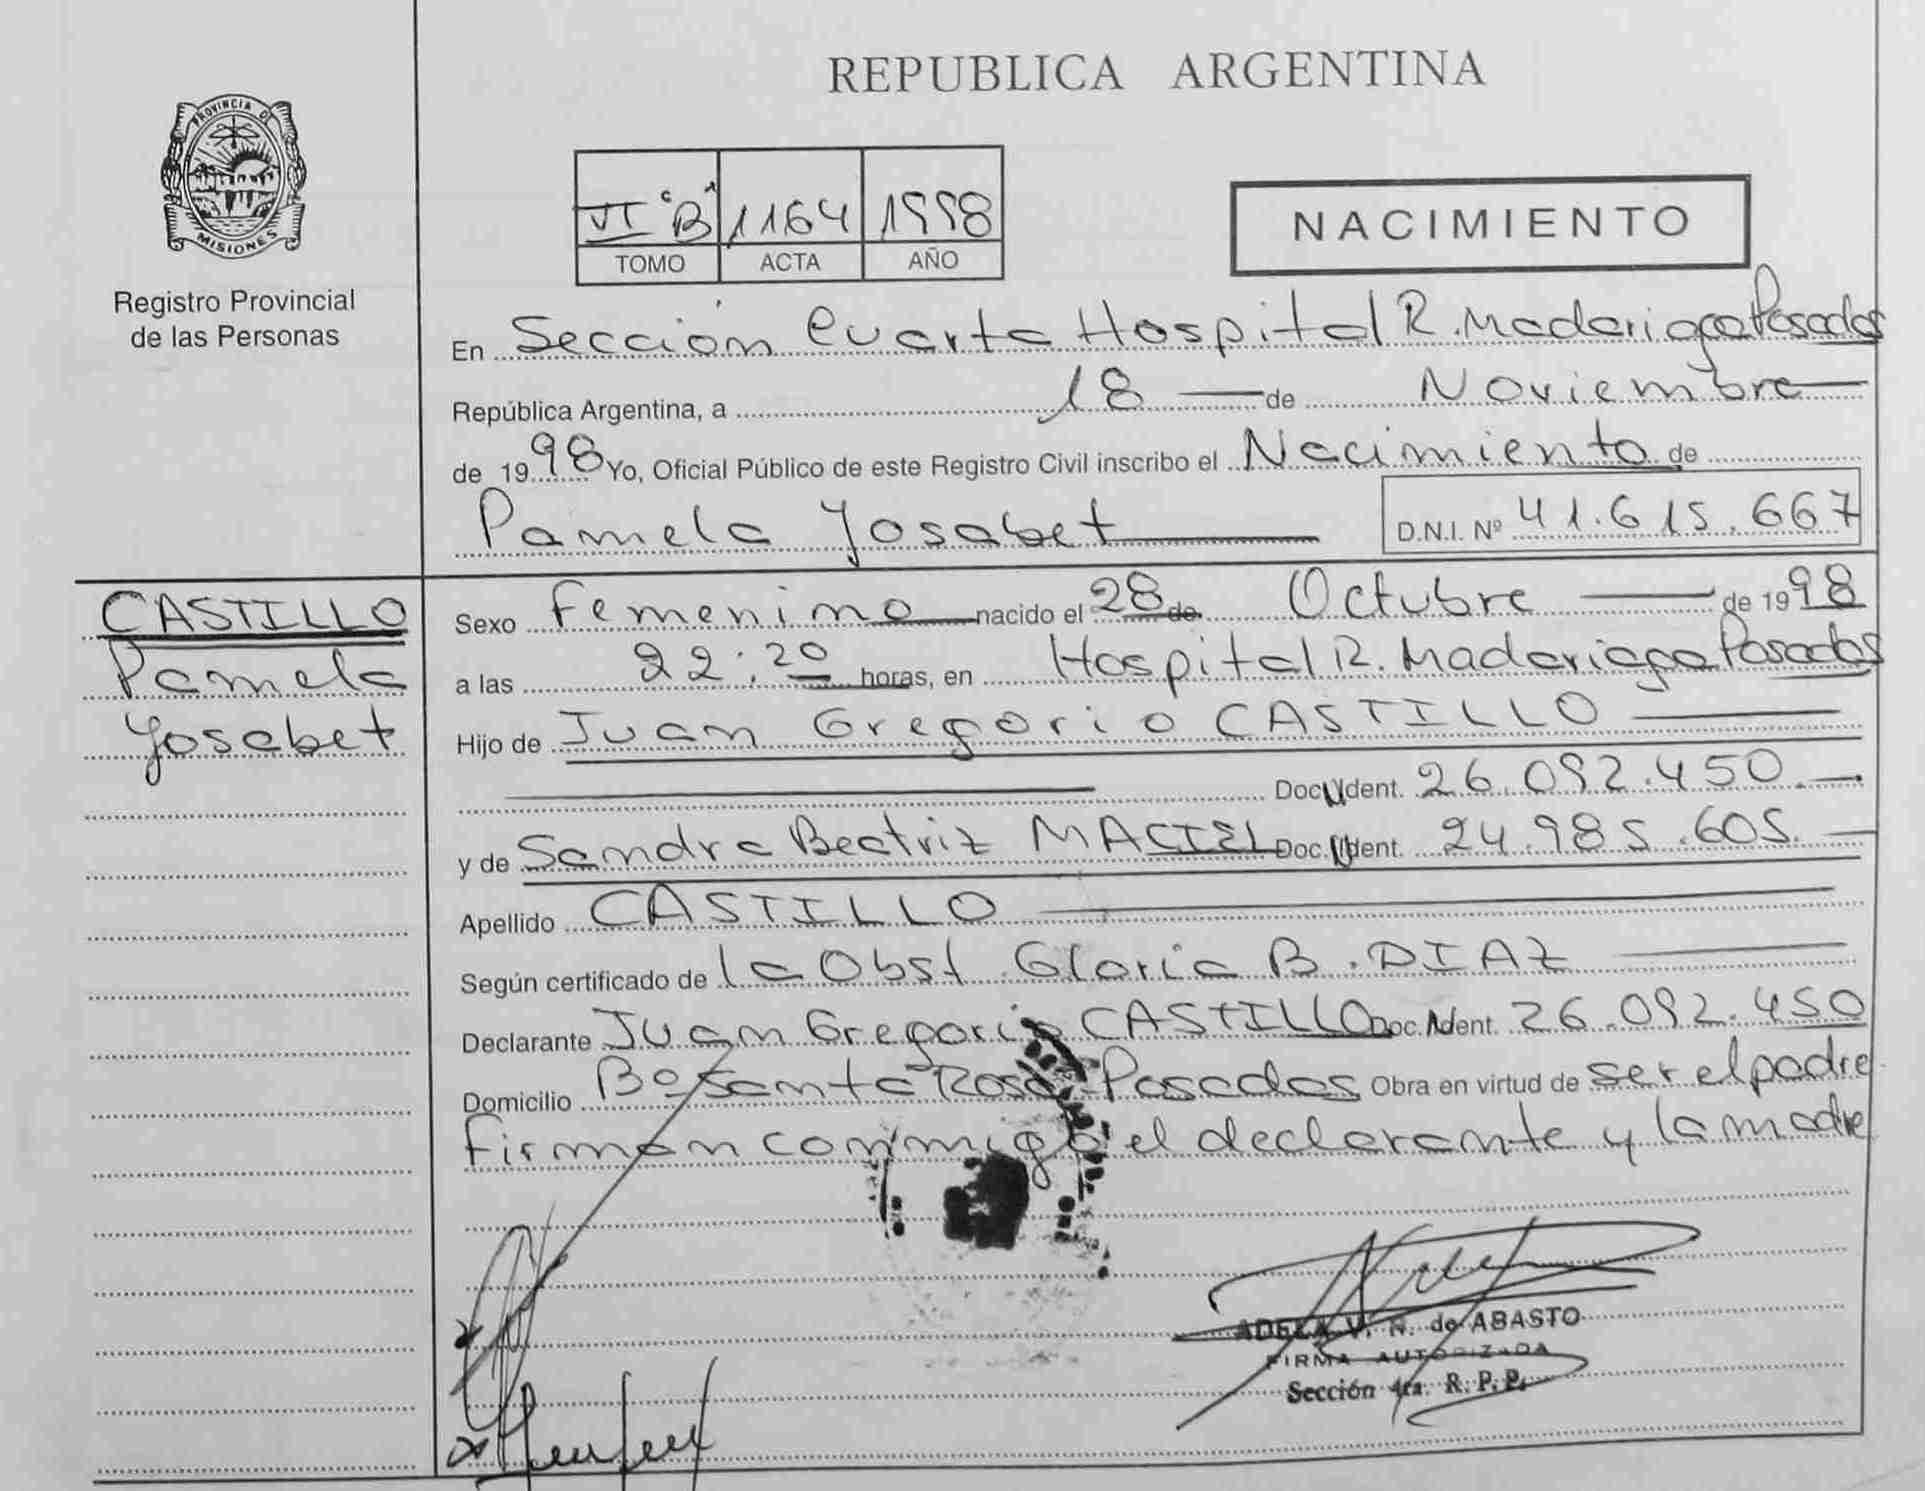 REPUBLICA ARGENTINA
PROVINCIA DE
MISIONES
Registro Provincial
de las Personas
VI "B" 1164 1998
TOMO ACTA AÑO
NACIMIENTO
En Sección Cuarta Hospital R. Madariaga Posadas
República Argentina, a 18 de Noviembre
de 1998 Yo, Oficial Público de este Registro Civil inscribo el Nacimiento de
Pamela Yosabet D.N.I. Nº 41.615.667
CASTILLO
Pamela
Yosabet
Sexo Femenino nacido el 28 de Octubre de 1998
a las 22:20 horas, en Hospital R. Madariaga Posadas
Hijo de Juan Gregorio CASTILLO
Doc. Ident. 26.092.450.
y de Sandra Beatriz MACIEL Doc. Ident. 24.985.605.
Apellido CASTILLO
Según certificado de la Obst. Gloria B. DIAZ
Declarante Juan Gregorio CASTILLO Doc. Ident. 26.092.450
Domicilio Bº Santa Rosa Posadas Obra en virtud de ser el padre
firman conmigo el declarante y la madre
ADELA V. N. de ABASTO
FIRMA AUTORIZADA
Sección 4ta. R. P. P.